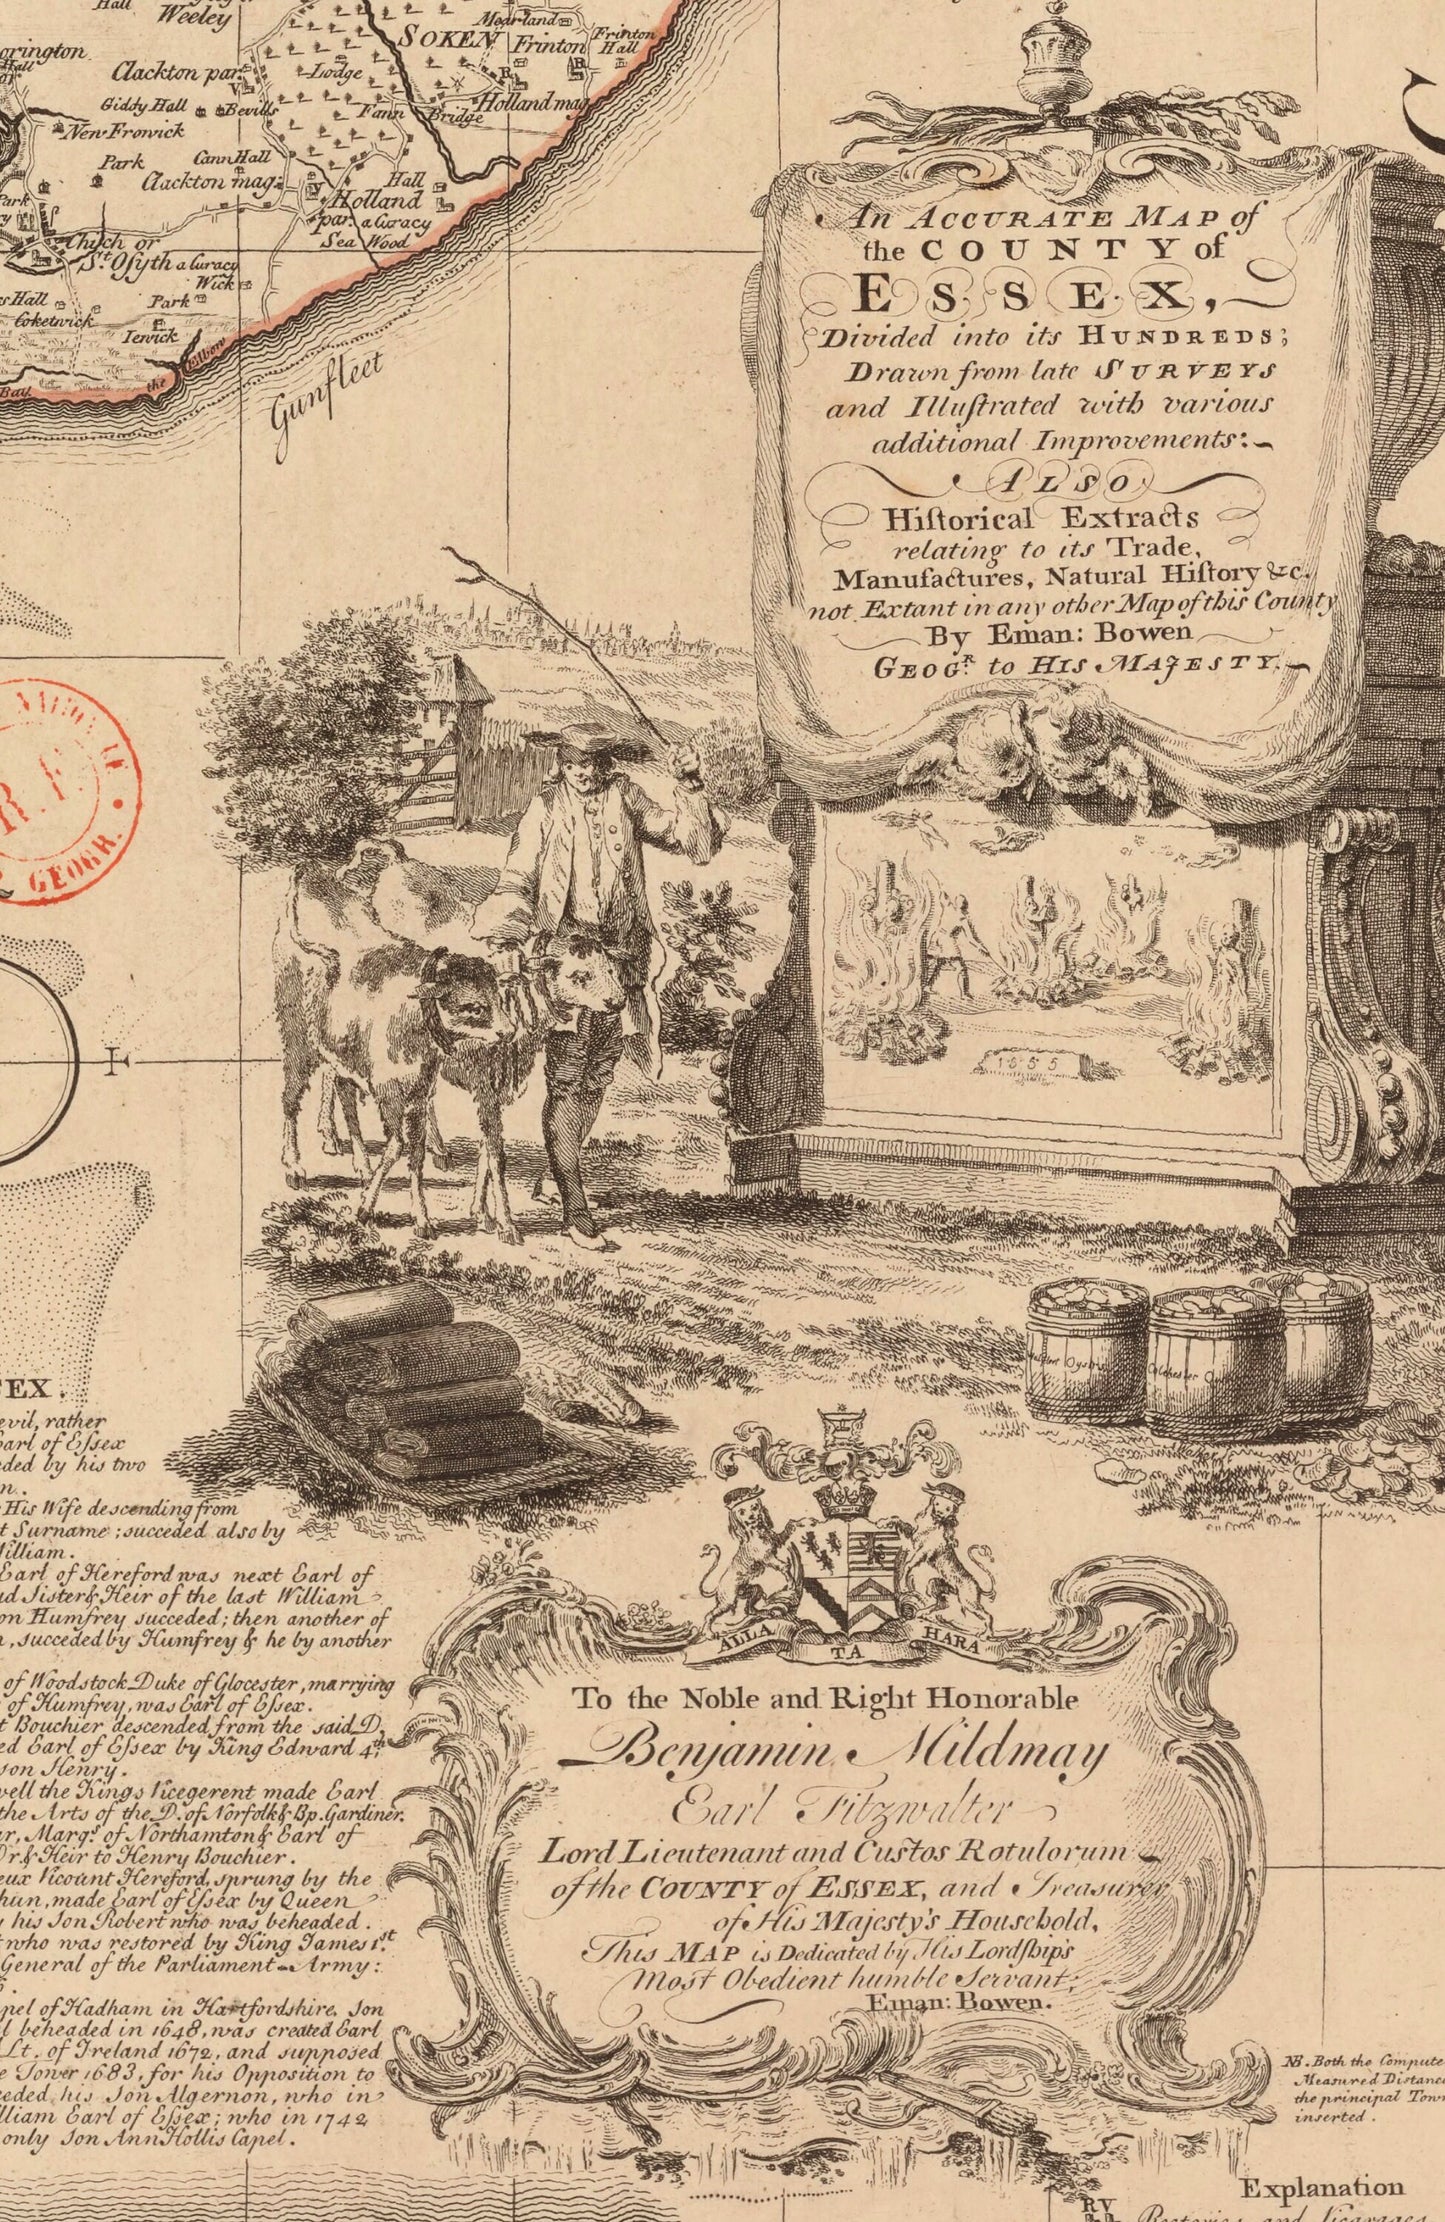 Hall
Weeley
SOKEN
Moorland
Frinton
Frinton
Hall
orington
Hall
Clackton par.
Lodge
Giddy Hall
Bevills
Fann
Bridge
Holland mag.
New Frowick
Park
Cann Hall
Clackton mag.
Hall
Holland
par. a Curacy
Sea Wood
Park
Chich or
St. Osyth a Curacy
Wick
s Hall
Park
Coketwick
Iewick
the Elbow
Bay
Gunfleet
An ACCURATE MAP of
the COUNTY of
ESSEX,
Divided into its HUNDREDS;
Drawn from late SURVEYS
and Illuſtrated with various
additional Improvements:
ALSO
Hiſtorical Extracts
relating to its Trade,
Manufactures, Natural Hiſtory &c.
not Extant in any other Map of this County
By Eman: Bowen
GEOGR. to HIS MAJESTY.
R.F.
GEOGR.
E
1555
Oysters
Colchester
ALLA TA HARA
To the Noble and Right Honorable
Benjamin Mildmay
Earl Fitzwalter
Lord Lieutenant and Custos Rotulorum
of the COUNTY of ESSEX, and Treasurer
of His Majesty's Household,
This MAP is Dedicated by His Lordſhip's
Most Obedient humble Servant,
Eman: Bowen.
EX.
evil, rather
Earl of Eſsex
eded by his two
n.
His Wife descending from
t Surname; succeded also by
William.
Earl of Hereford was next Earl of
nd Sister & Heir of the last William
on Humfrey succeded; then another of
n, succeded by Humfrey & he by another
of Woodstock Duke of Glocester, marrying
of Humfrey, was Earl of Eſsex.
t Bouchier descended from the said D.
ed Earl of Eſsex by King Edward 4th,
son Henry.
well the Kings Vicegerent made Earl
the Arts of the D. of Norfolk & Bp. Gardiner.
r, Marqs. of Northamton & Earl of
Dr & Heir to Henry Bouchier.
eux Vicount Hereford, sprung by the
hun, made Earl of Eſsex by Queen
y his Son Robert who was beheaded.
t who was restored by King James 1st.
General of the Parliament-Army:
pel of Hadham in Hartfordshire, Son
l beheaded in 1648, was created Earl
Lt. of Ireland 1672, and supposed
e Tower 1683, for his Opposition to
eded his Son Algernon, who in
lliam Earl of Eſsex; who in 1742
only Son Ann Hollis Capel.
NB. Both the Compute
Measured Distanc
the principal Tow
inserted.
Explanation
RV
Rectories and Vicarages